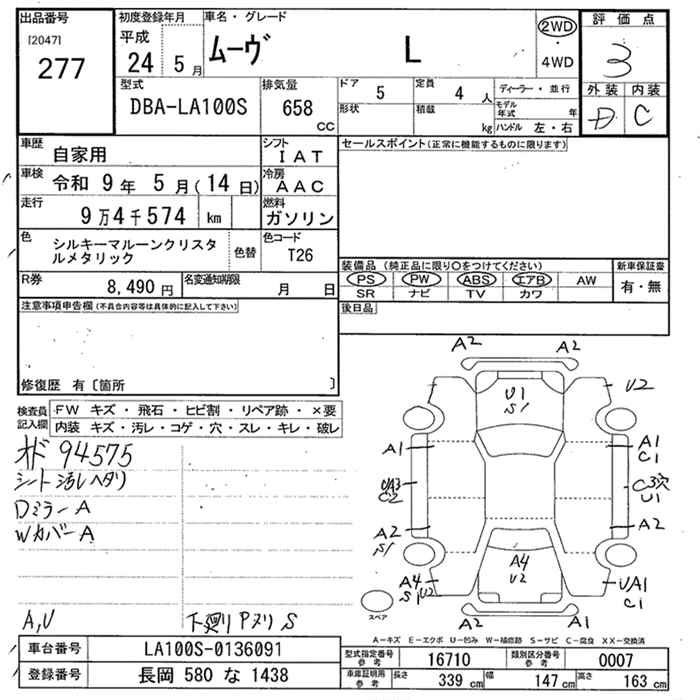 出品番号
[2047]
277
初度登録年月
平成
24 5月
車名・グレード
ムーヴ L
2WD
・
4WD
評価点
3
外装 内装
D C
型式
DBA-LA100S
排気量
658
cc
ドア 5
形状
定員 4人
積載 kg
ディーラー・並行
モデル年式 年
ハンドル 左・右
車歴
自家用
シフト
IAT
車検
令和 9年 5月(14日)
冷房
AAC
走行
9万4千574 km
燃料
ガソリン
色
シルキーマルーンクリスタ
ルメタリック
色替
色コード
T26
R券
8,490円
名変通知期限
月 日
セールスポイント(正常に機能するものに限ります)
装備品(純正品に限り〇をつけてください)
新車保証書
PS PW ABS エアB AW
有・無
SR ナビ TV カワ
後日品
注意事項申告欄(不具合内容等は具体的に記入して下さい)
修復歴 有〔箇所 〕
検査員
記入欄
FW キズ・飛石・ヒビ割・リペア跡・×要
内装 キズ・汚レ・コゲ・穴・スレ・キレ・破レ
オド 94575
シート汚レヘタリ
DミラーA
WカバーA
A,U
下廻り Pヌリ S
A2 A2
U1
S1
U2
A1
A1
C1
UA3
C2
C3穴
U1
A2
S1
A2
A4
U2
A4
S1 U2
UA1
C1
A2 A1
スペア
A-キズ E-エクボ U-凹み W-補修跡 S-サビ C-腐食 XX-交換済
車台番号
LA100S-0136091
登録番号
長岡 580 な 1438
型式指定番号
参考
16710
類別区分番号
参考
0007
車庫証明用
参考
長さ 339cm 幅 147cm 高さ 163cm